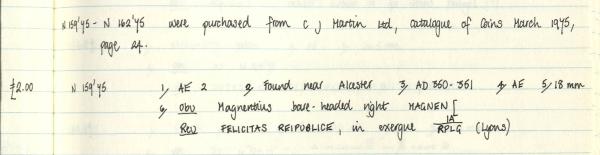 N 159'45 - N 162'45 were purchased from C J Martin Ltd, catalogue of Coins March 1945,
page 24.
£2.00 N 159'45 1/ AE 2 2/ Found near Alcester 3/ AD 350-351 4/ AE 5/ 18 mm
6/ Obv Magnentius bare-headed right MAGNEN[
Rev FELICITAS REIPUBLICE, in exergue IA / RPLG (Lyons)